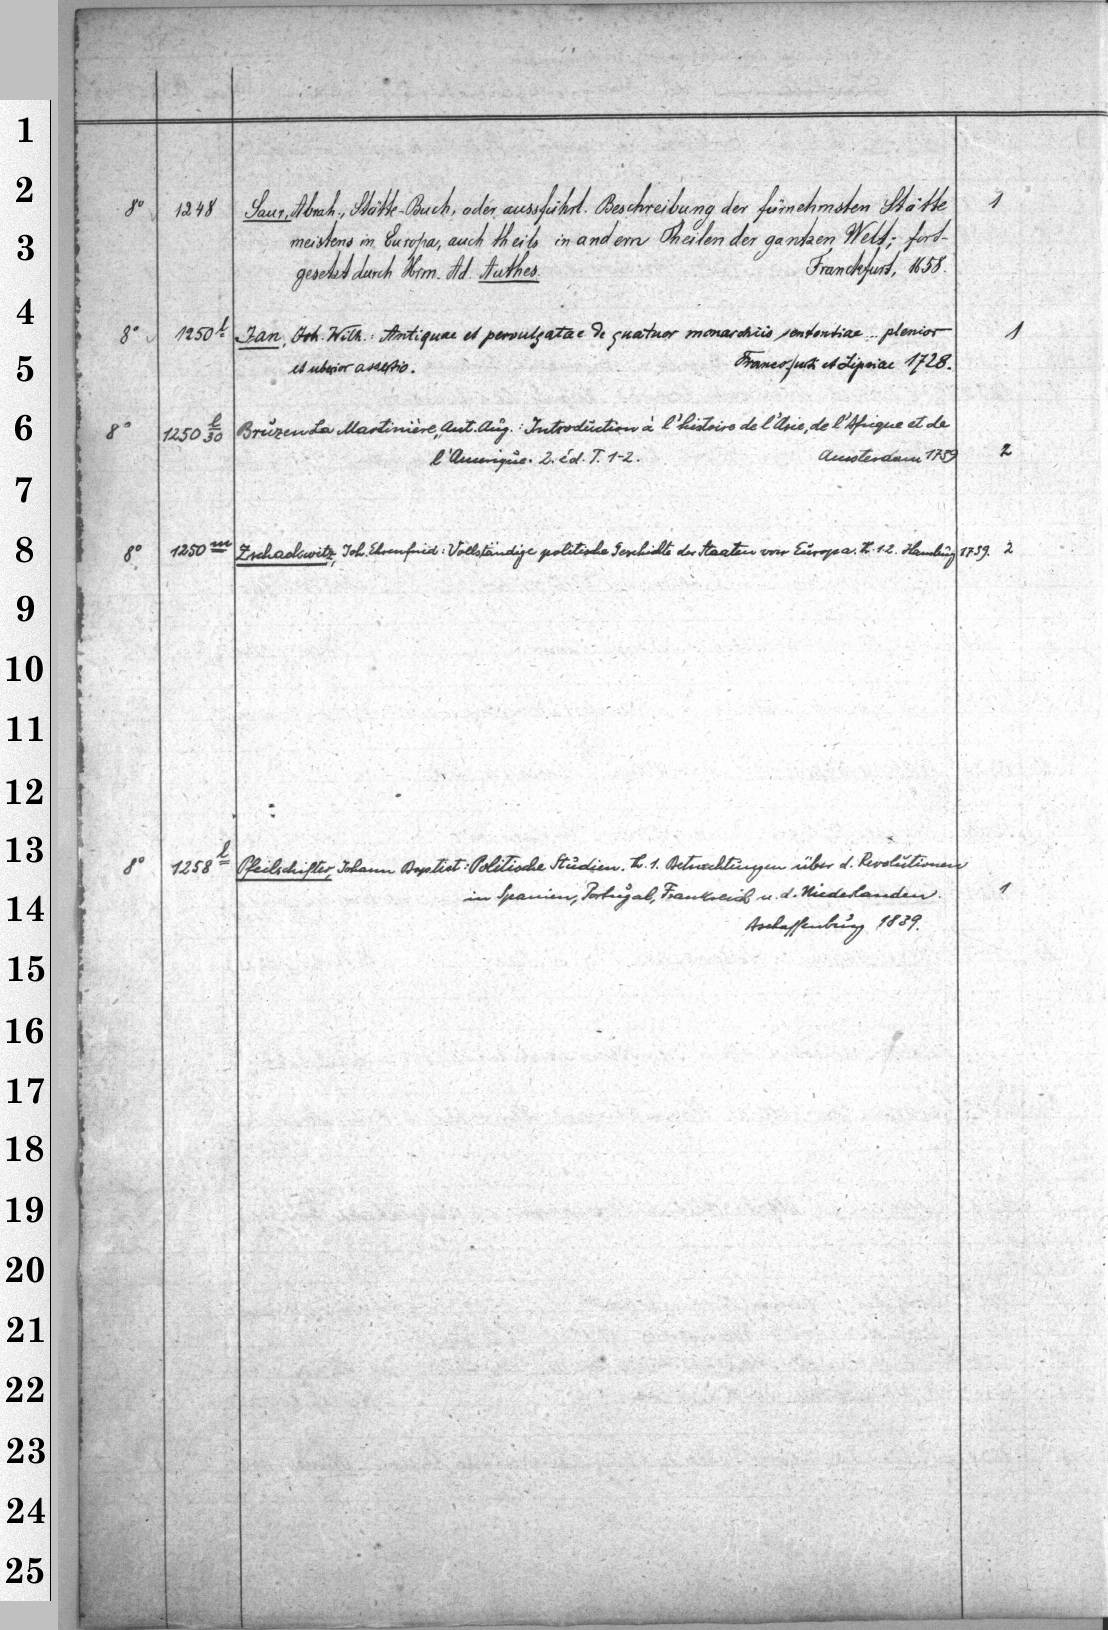 1
2
3
4
5
6
7
8
9
10
11
12
13
14
15
16
17
18
19
20
21
22
23
24
25
8° 1248 Saur, Abrah., Stätte-Buch, oder ausführl. Beschreibung der fürnehmsten Stätte 1
meistens in Europa, auch theils in andern Theilen der gantzen Welt; fort-
gesetzt durch Hrm. Ad. Authes. Franckfurt, 1658.
8° 1250 l Jan, Joh. Wilh.: Antiquae et pervulgatae de quatuor monarchiis sententiae... plenior 1
et uberior assertio. Francofurti et Lipsiae 1728.
8° 1250 l/30 Bruzen La Martinière, Ant. Aug.: Introduction à l'histoire de l'Asie, de l'Afrique et de
l'Amerique. 2. éd. T. 1-2. Amsterdam 1739 2
8° 1250 m Zschackwitz, Joh. Ehrenfried: Vollständige politische Geschichte der Staaten von Europa. Th. 1-2. Hamburg 1739. 2
8° 1258 l Pfeilschifter, Johann Baptist: Politische Studien. Th. 1. Betrachtungen über d. Revolutionen
in Spanien, Portugal, Frankreich u. d. Niederlanden. 1
Aschaffenburg 1839.